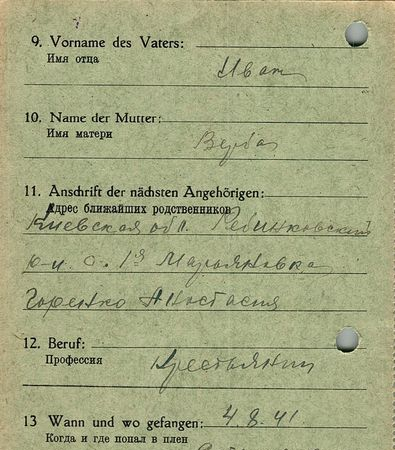 9. Vorname des Vaters:
Имя отца
Иван
10. Name der Mutter:
Имя матери
Верба
11. Anschrift der nächsten Angehörigen:
Адрес ближайших родственников
Киевская обл.
с. 1я Марьяновка
Горенко Анастасия
12. Beruf:
Профессия
Крестьянин
13 Wann und wo gefangen: 4.8.41.
Когда и где попал в плен